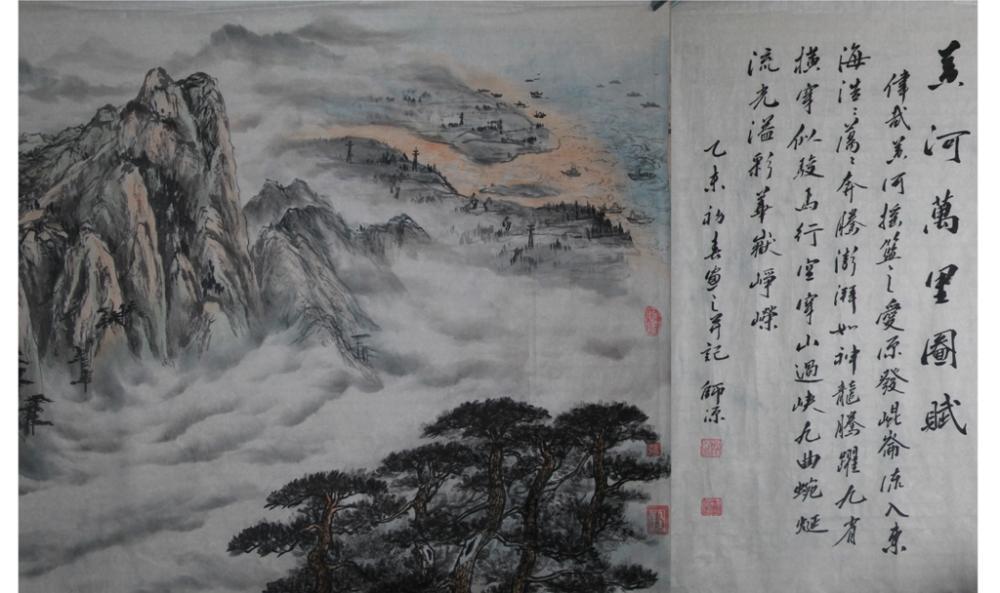 黄河萬里圖賦
偉哉黄河搖籃之愛源發崐崙流入東
海浩々蕩々奔騰澎湃如神龍騰躍九省
横穿似駿馬行空穿山過峽九曲蜿蜒
流光溢彩華嶽崢嶸
乙未初春寫之并記 師源